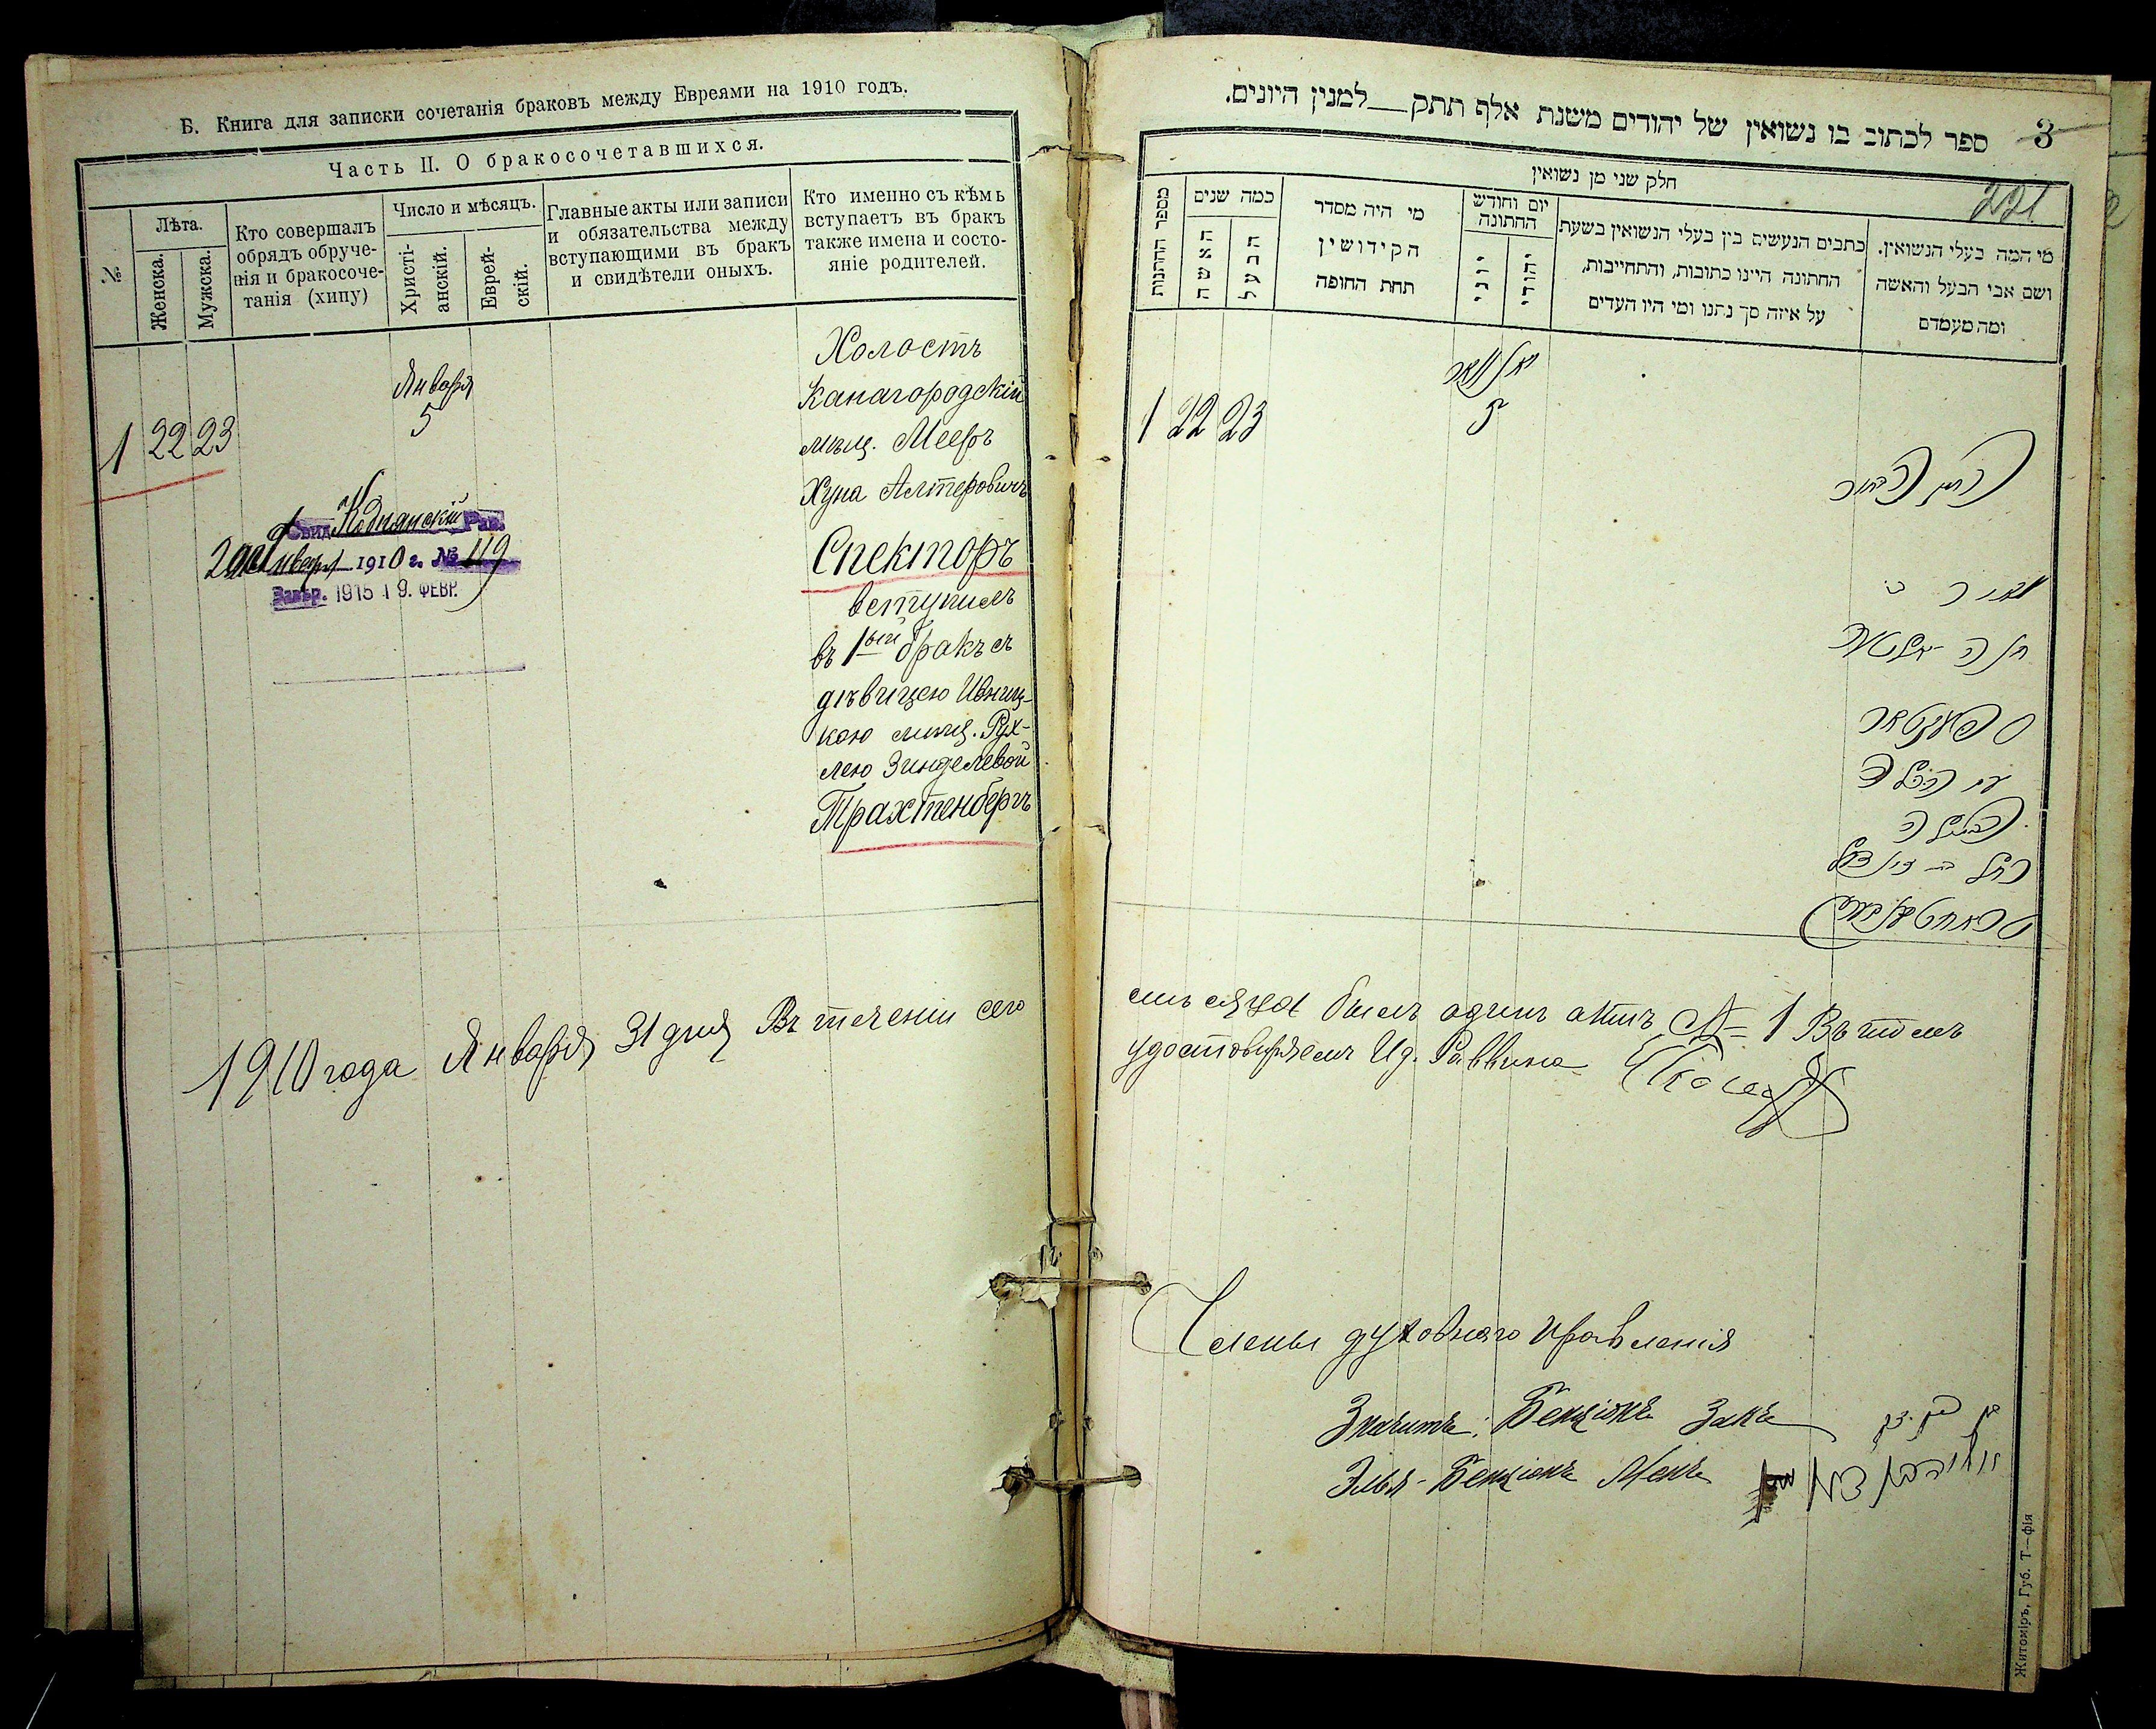 Б. Книга для записки сочетанія браковъ между Евреями на 1910 годъ.
Часть II. О бракосочетавшихся.
№.
Лѣта.
Женска.
Мужска.
Кто совершалъ
обрядъ обруче-
нія и бракосоче-
танія (хипу)
Число и мѣсяцъ.
Христі-
анскій.
Еврей-
скій.
Главные акты или записи
и обязательства между
вступающими въ бракъ
и свидѣтели оныхъ.
Кто именно съ кѣмъ
вступаетъ въ бракъ
также имена и состо-
яніе родителей.
1 22 23
Января
5
Холостъ
Канагородскій
мѣщ. Мееръ
Хуна Алтеровичъ
Спекторъ
вступилъ
въ 1ый бракъ съ
дѣвицею Ивниц-
кою мѣщ. Рух-
лею Зинделевой
Трахтенбергъ
Свид. Рав.
Января 1910 г. № 119
Завѣр. 1915 19. ФЕВР.
1910 года Января 31 дня Въ теченіи сего
3
221
ספר לכתוב בו נשואין של יהודים משנת אלף תתק—למנין היונים.
חלק שני מן נשואין
מספר החתנות
כמה שנים
האשה
הבעל
מי היה מסדר
הקידושין
תחת החופה
יום וחודש
החתונה
יוני
יהודי
כתבים הנעשים בין בעלי הנשואין בשעת
החתונה היינו כתובות, והתחייבות,
על איזה סך נתנו ומי היו העדים
מי המה בעלי הנשואין.
ושם אבי הבעל והאשה
ומה מעמדם
1 22 23
יאנואר
5
החתן הבחור
מאיר ב׳
ספעקטאר
עם הכלה
הבתולה
רחל ב׳ זינדיל
טראחטענבערג
мѣсяца былъ одинъ актъ № 1 Въ томъ
удостовѣряемъ И д. Раввина
Члены духовнаго правленія
Значитъ: Бенціонъ Закъ
Элья-Бенціонъ Менъ
Житоміръ, Губ. Т—фія